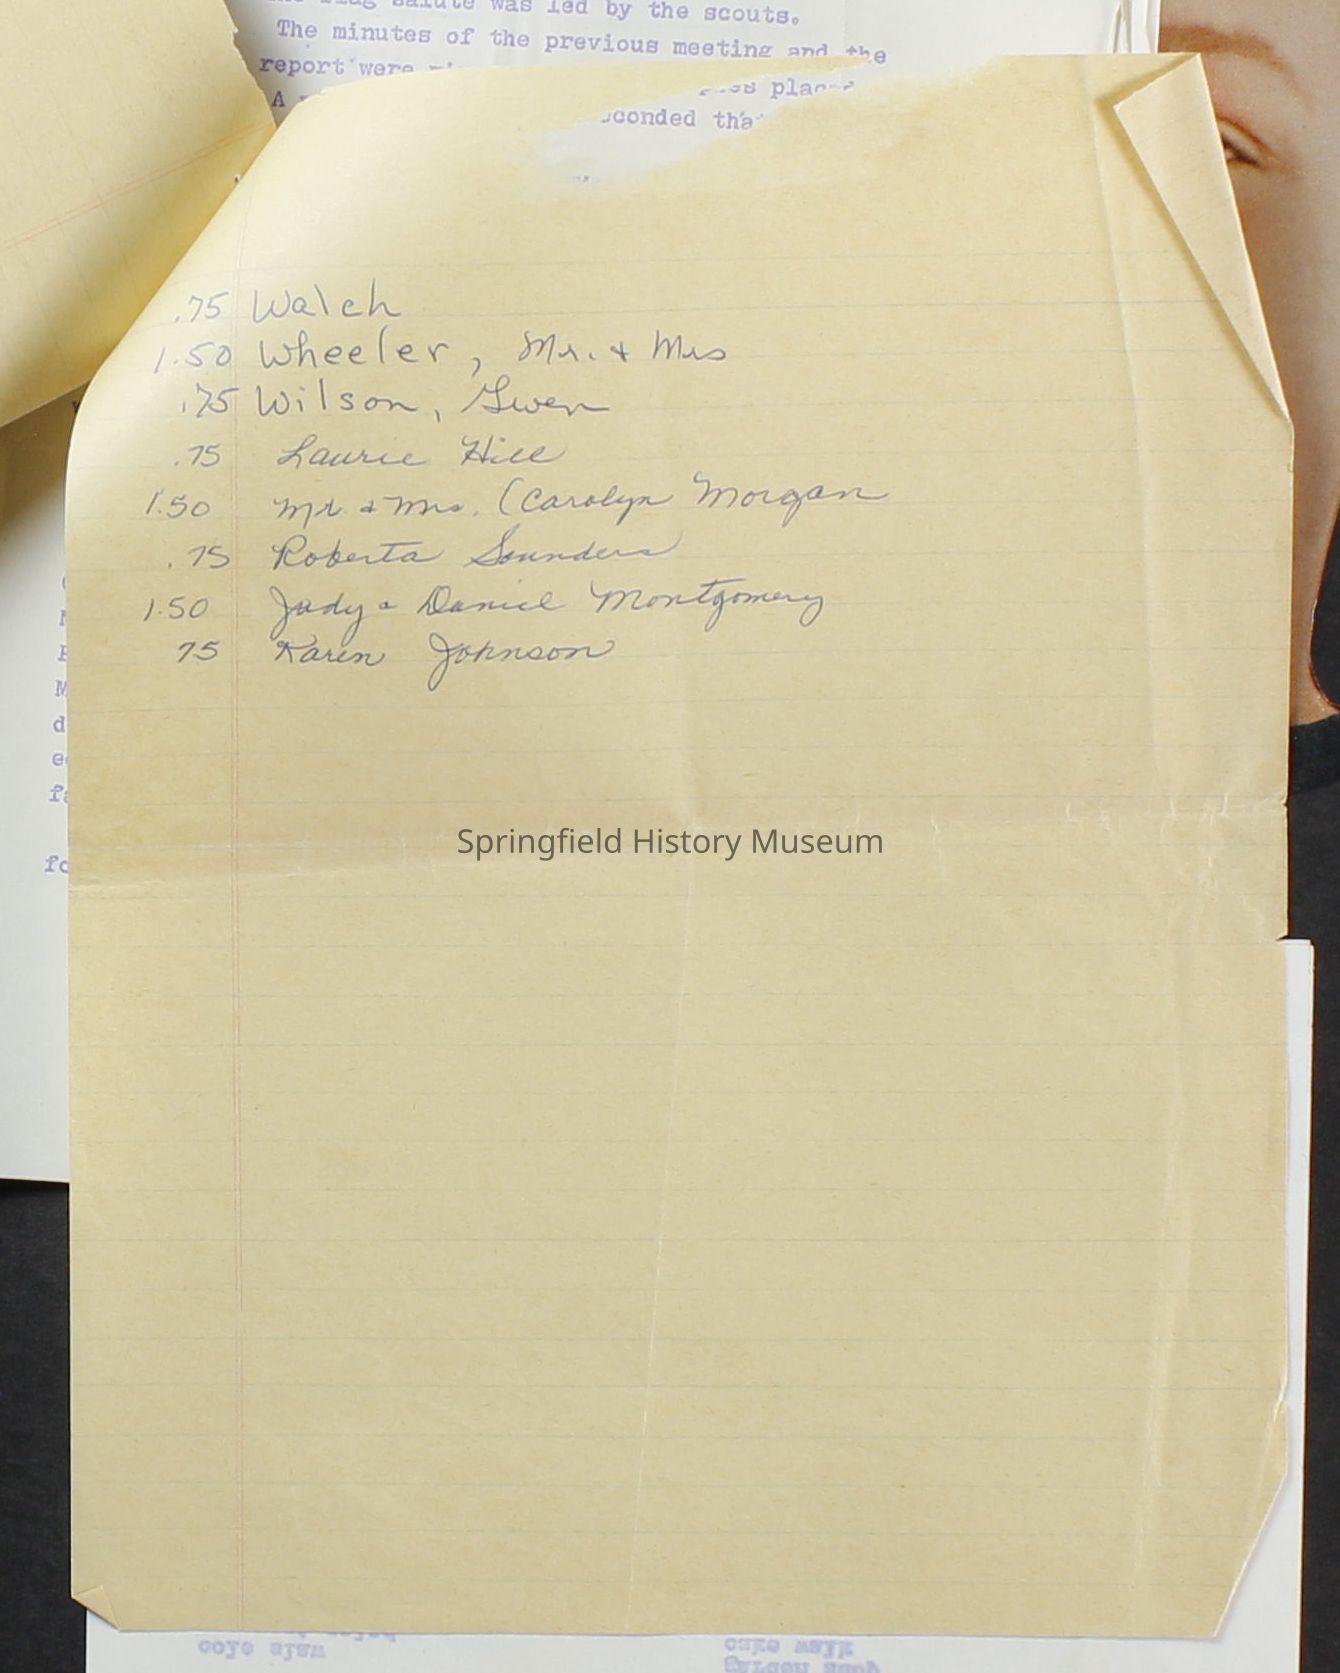 flag salute was led by the scouts.
The minutes of the previous meeting and the
report were
A
conded tha
.75 Walch
1.50 Wheeler, Mr. & Mrs
.75 Wilson, Gwen
.75 Laurie Hill
1.50 Mr. & Mrs. (Carolyn Morgan
.75 Roberta Saunders
1.50 Judy & Daniel Montgomery
75 Karen Johnson
Springfield History Museum
cole slaw
cake walk